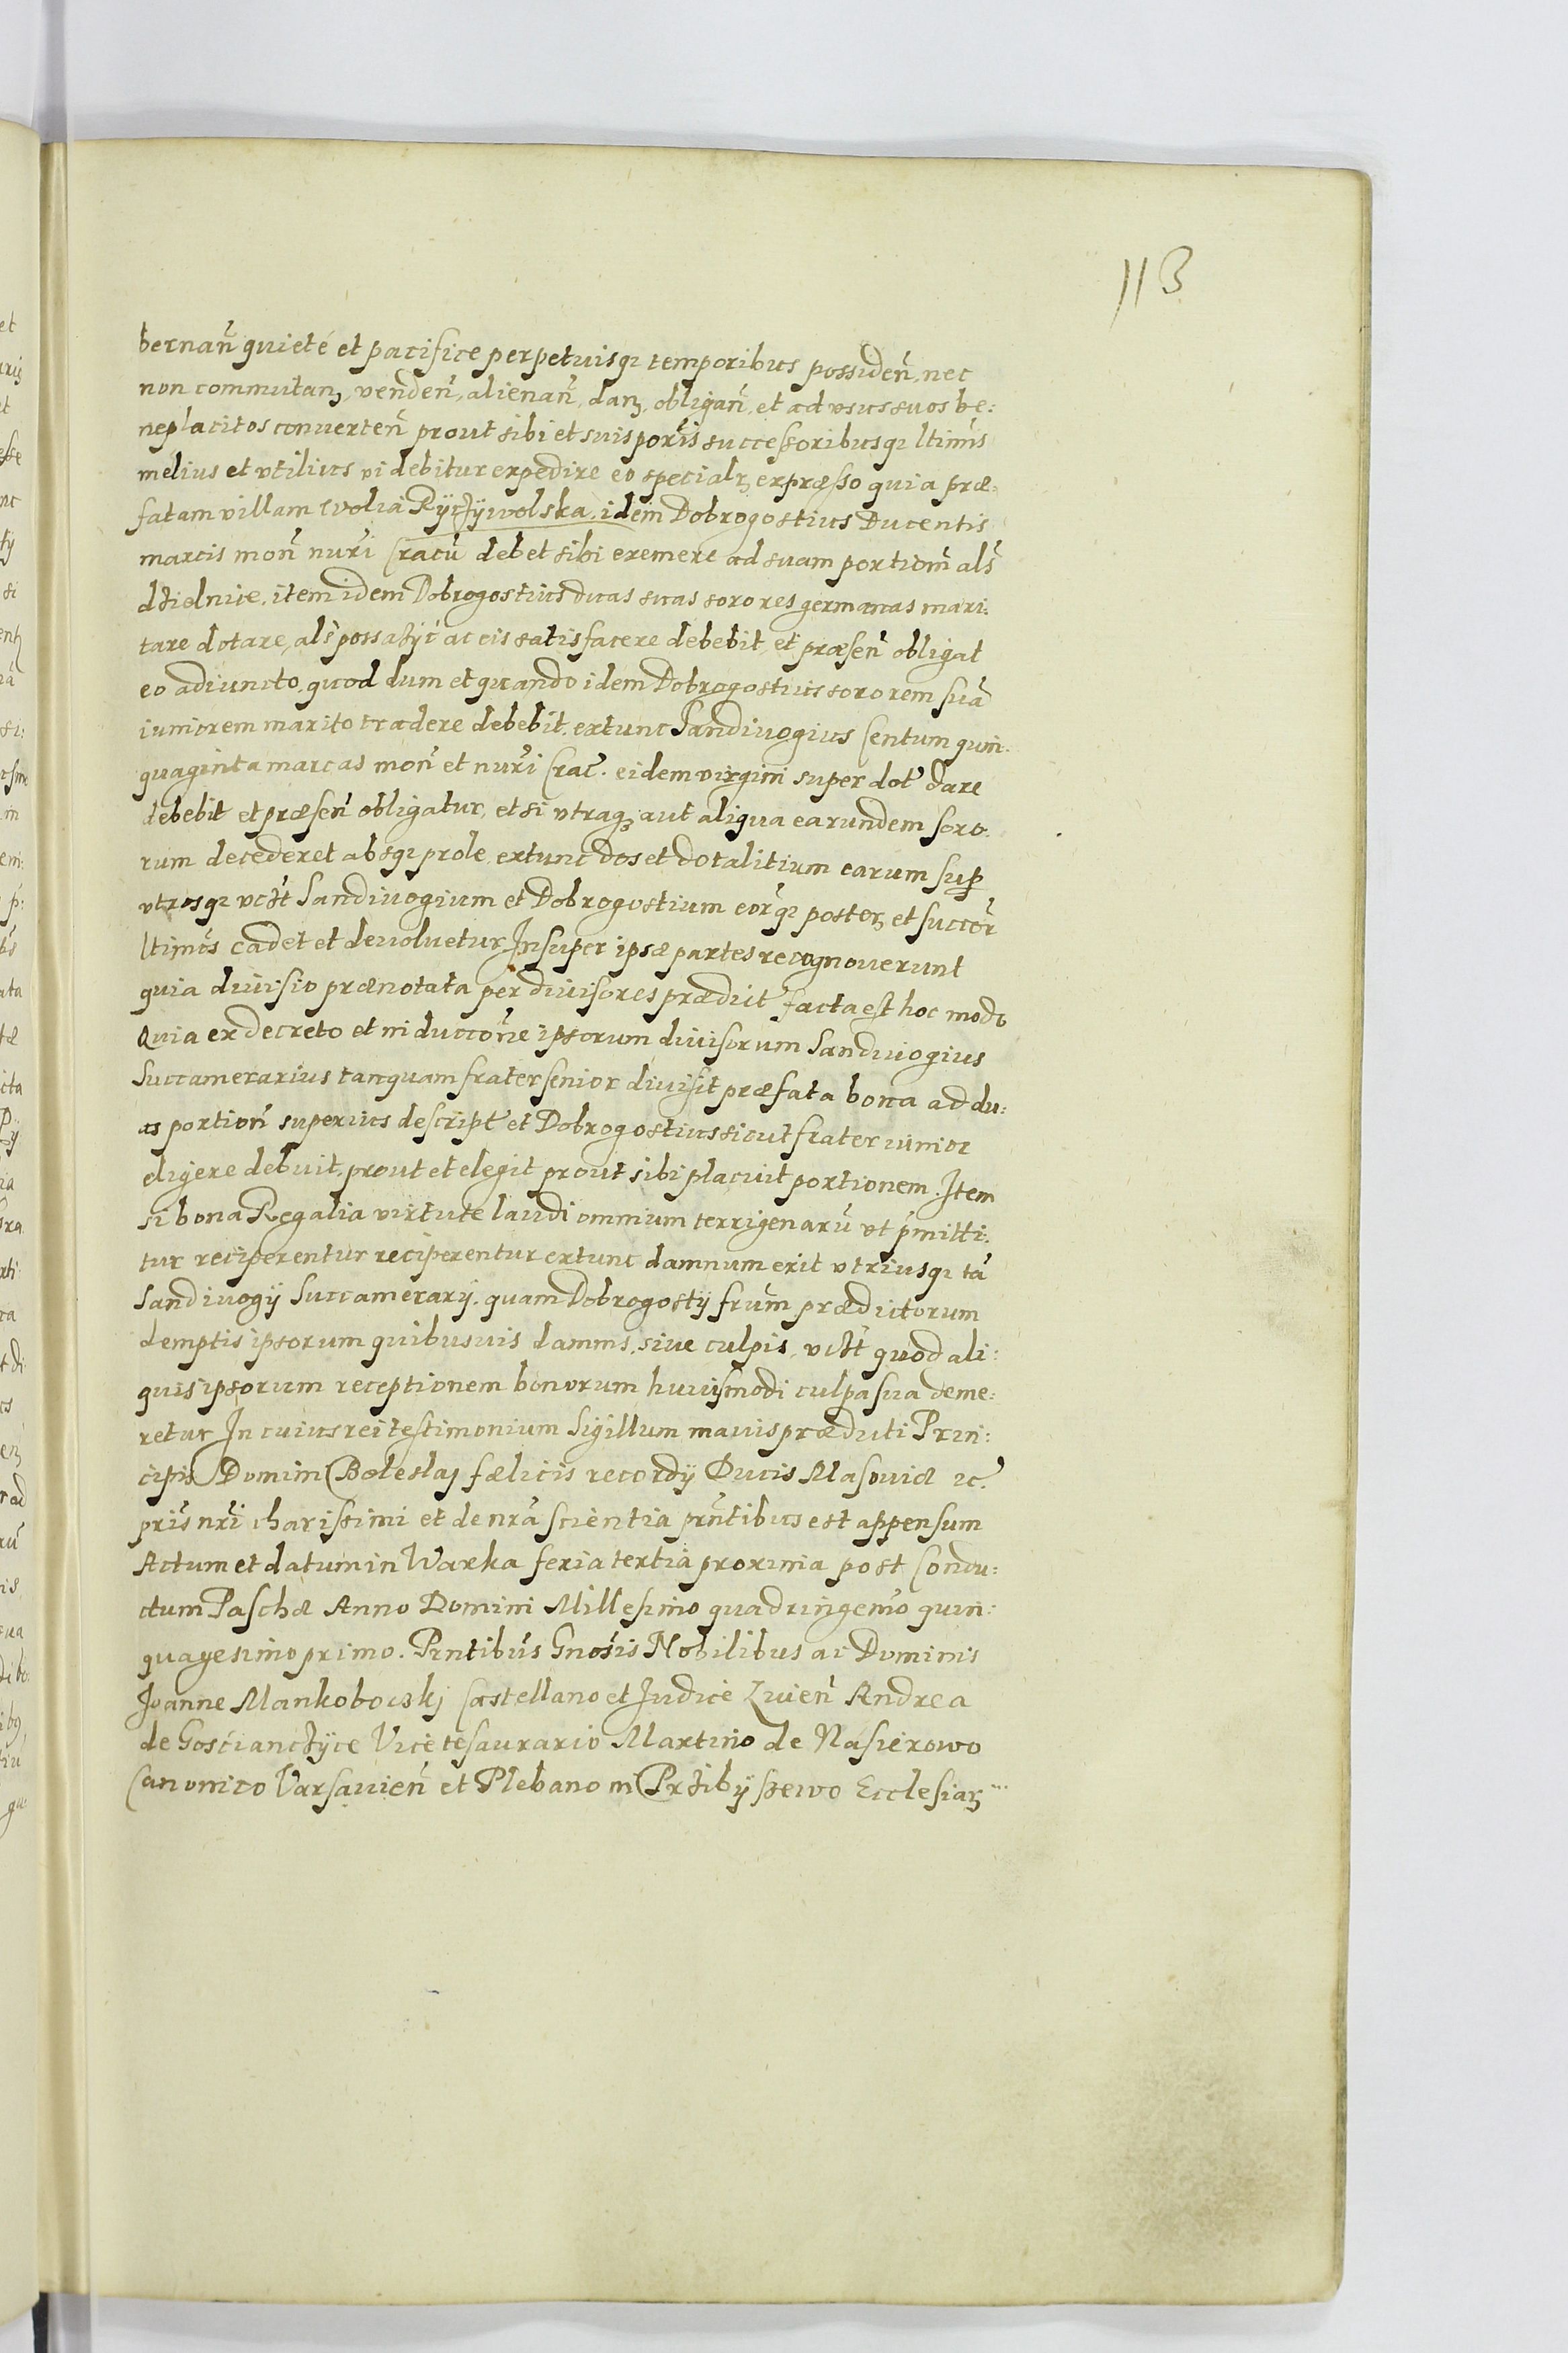 113
bernañ quieté et pacifice perpetuisqꝫ temporibus possideñ, nec
non commutanꝫ, vendeñ, alienañ, danꝫ, obligañ, et ad vsus suos be:
neplacitos converteñ prout sibi et suis poris successoribusqꝫ ltimis
melius et vtilius videbitur expedire eo specialꝫ expræsso quia præ:
fatam villam Wolia Ryczÿwolska, idem Dobrogostius Ducentis
marcis moñ nuri Cracũ debet sibi exemere ad suam portioñ als
dzielnice, item idem Dobrogostius duas suas sorores germanas mari:
tare dotare, als possazÿc ac eis satisfacere debebit, et præseñ obligat
eo adiuncto, quod dum et quando idem Dobrogostius sororem suã
iuniorem marito tradere debebit, extunc Sandivogius Centum quin:
quaginta marcas moñ et nuri Crac. eidem virgini super dot dare
debebit et præseñ obligatur, et si vtraqꝫ aut aliqua earundem soro:
rum decederet absqꝫ prole, extunc dos et dotalitium earum sup
vtrosqꝫ vcꝫt Sandivogium et Dobrogostium eorqꝫ posterꝫ et succor
ltimos cadet et devoluetur Insuper ipsæ partes recognoverunt
quia divisio prænotata per divisores prædict facta est hoc modo
Quia ex decreto et inducciõne ipsorum divisorum Sandivogius
Succamerarius tanquam frater senior divisit præfata bona ad du:
as portioñ superius descript et Dobrogostius sicut frater iunior
eligere debuit, prout et elegit prout sibi placuit portionem. Item
si bona Regalia virtute laudi omnium terrigenarũ vt pmitti:
tur reciperentur reciperentur extunc damnum erit vtriusqꝫ tã
Sandivogij Succamerarij. quam Dobrogostij frum prædictorum
demptis ipsorum quibusuis damnis, sive culpis, vcꝫt quod ali:
quis ipsorum receptionem bonorum huiusmodi culpa sua deme:
retur In cuius rei testimonium Sigillum maius prædicti Prin:
cipis Domini Boleslaj fælicis recordij Ducis Masoviæ ꝛc
pris nri charissimi et de nra scientia prntibus est appensum
Actum et datum in Warka feria tertia proxima post Condu:
ctum Paschæ Anno Domini Millesimo quadringemo quin:
quagesimo primo. Prntibus Gnosis Nobilibus ac Dominis
Joanne Mankobowskj Castellano et Judice Lvieñ Andrea
de Gosciancÿce Vicetesaurario Martino de Nasierowo
Canonico Varsavieñ et Plebano in Przibÿszewo Ecclesiarꝫ